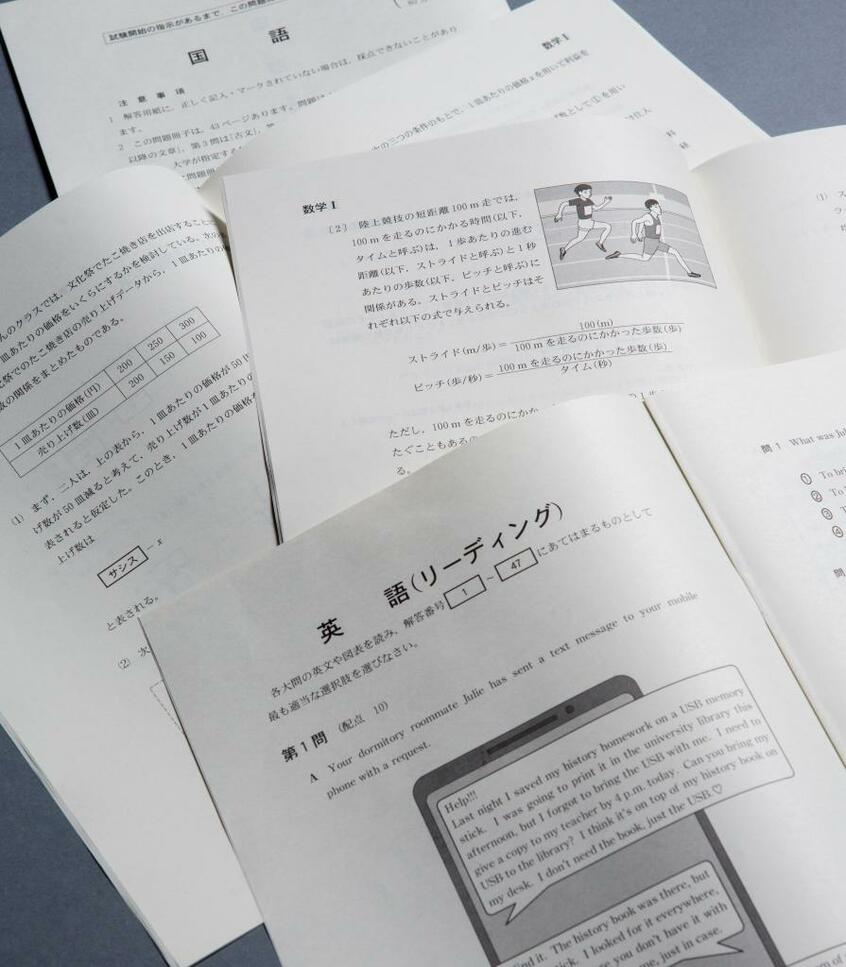 試験開始の指示があるまで，この問題
国　語
注 意 事 項
1 解答用紙に，正しく記入・マークされていない場合は，採点できないことがあり
ます。
2 この問題冊子は，43 ページあります。問題は
以降の文章］，第 3 問は［古文］，第
大学が指定する
数学 I
の三つの条件のもとで，1 皿あたりの価格 x を用いて利益を
んのクラスでは，文化祭でたこ焼き店を出店すること
皿あたりの価格をいくらにするかを検討している。次の
祭でのたこ焼き店の売り上げデータから，1 皿あたりの
数の関係をまとめたものである。
1 皿あたりの価格(円) 200 250 300
売り上げ数(皿) 200 150 100
(1) まず，二人は，上の表から，1 皿あたりの価格が 50 円
げ数が 50 皿減ると考えて，売り上げ数が 1 皿あたりの
表されると仮定した。このとき，1 皿あたりの価格
上げ数は
サシス － x
と表される。
(2) 次
数学 I
〔2〕 陸上競技の短距離 100 m 走では，
100 m を走るのにかかる時間(以下，
タイムと呼ぶ)は，1 歩あたりの進む
距離(以下，ストライドと呼ぶ)と 1 秒
あたりの歩数(以下，ピッチと呼ぶ)に
関係がある。ストライドとピッチはそ
れぞれ以下の式で与えられる。
ストライド(m/歩)＝ 100(m) / 100 m を走るのにかかった歩数(歩)
ピッチ(歩/秒)＝ 100 m を走るのにかかった歩数(歩) / タイム(秒)
ただし，100 m を走るのにかか
たぐこともあるの
る。
(1) ス
英　語(リーディング)
各大問の英文や図表を読み，解答番号 1 ～ 47 にあてはまるものとして
最も適当な選択肢を選びなさい。
第 1 問 (配点 10)
A Your dormitory roommate Julie has sent a text message to your mobile
phone with a request.
Help!!!
Last night I saved my history homework on a USB memory
stick. I was going to print it in the university library this
afternoon, but I forgot to bring the USB with me. I need to
give a copy to my teacher by 4 p.m. today. Can you bring my
USB to the library? I think it's on top of my history book on
my desk. I don't need the book, just the USB.♡
find it. The history book was there, but
stick. I looked for it everywhere,
you don't have it with
me, just in case.
問 1 What was Jul
① To bri
② To
③ T
④
問